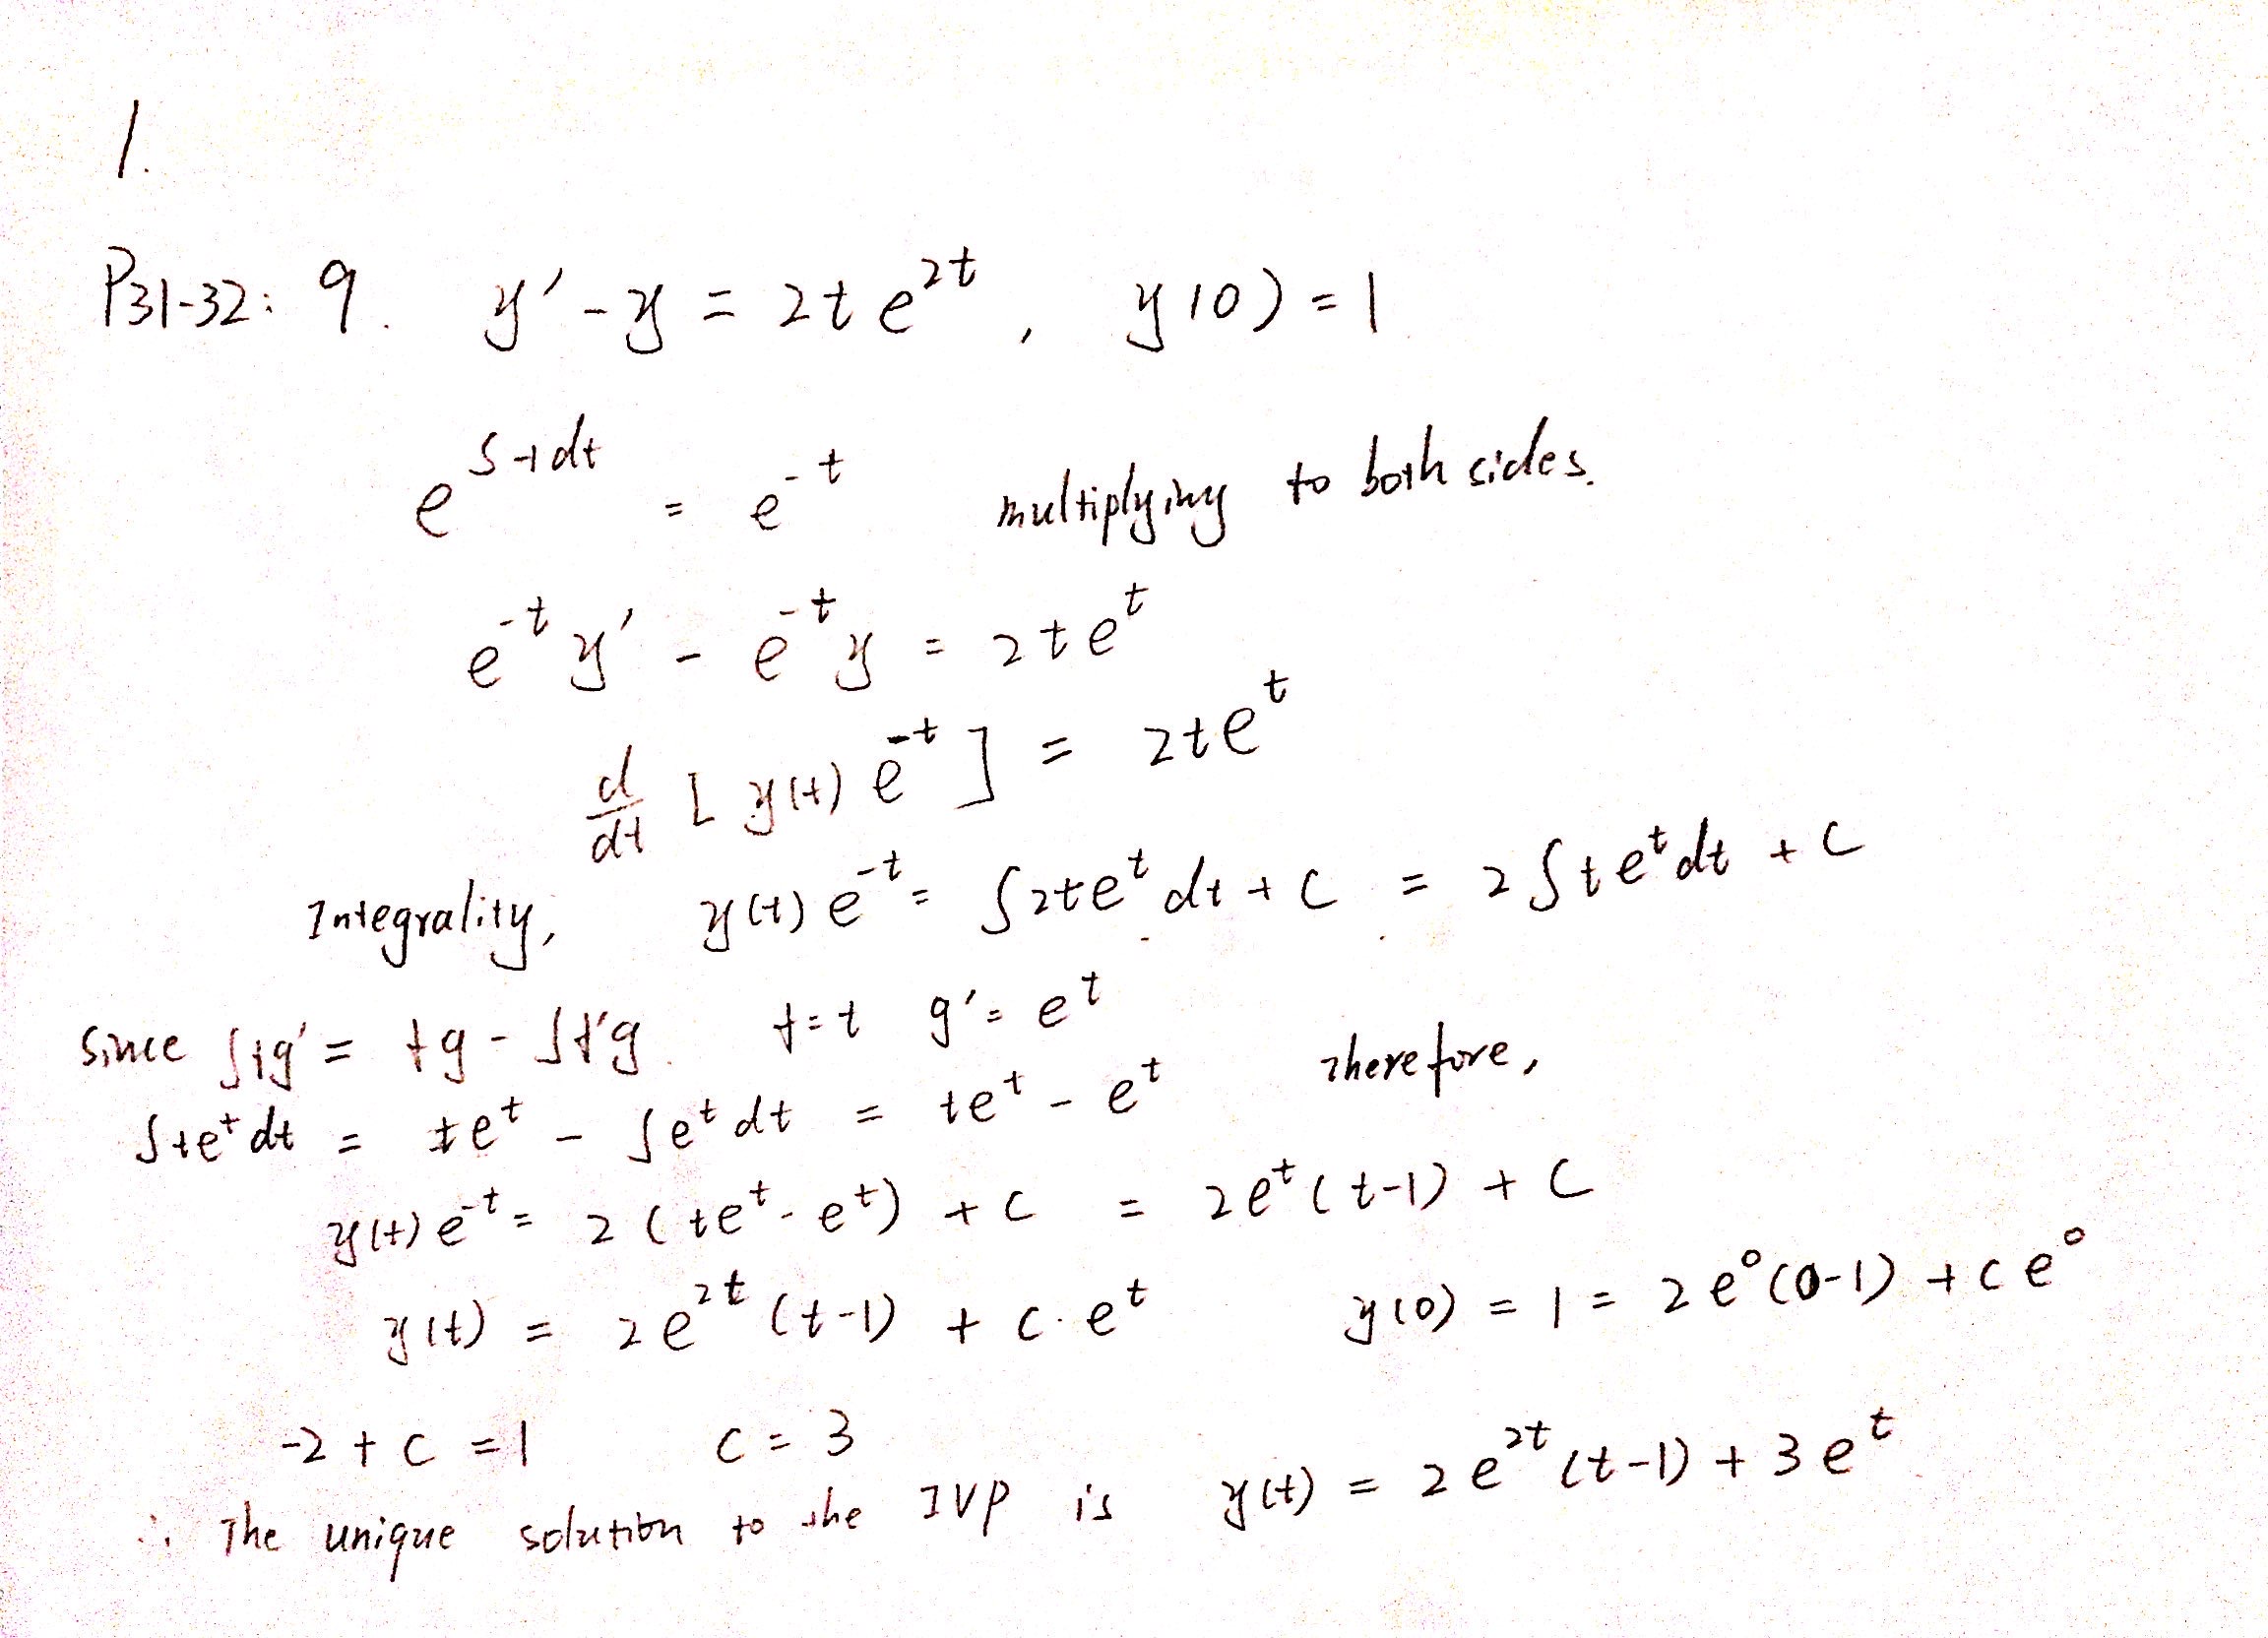 1.
P31-32: 9. y' - y = 2te^{2t}, y(0) = 1
e^{∫-1dt} = e^{-t} multiplying to both sides.
e^{-t}y' - e^{-t}y = 2te^{t}
d/dt [y(t)e^{-t}] = 2te^{t}
Integrality, y(t)e^{-t} = ∫2te^{t}dt + C = 2∫te^{t}dt + C
Since ∫fg' = fg - ∫f'g. f=t g'=e^{t}
∫te^{t}dt = te^{t} - ∫e^{t}dt = te^{t} - e^{t} Therefore,
y(t)e^{-t} = 2(te^{t} - e^{t}) + C = 2e^{t}(t-1) + C
y(t) = 2e^{2t}(t-1) + C·e^{t} y(0) = 1 = 2e^{0}(0-1) + Ce^{0}
-2 + C = 1 C = 3
∴ The unique solution to the IVP is y(t) = 2e^{2t}(t-1) + 3e^{t}